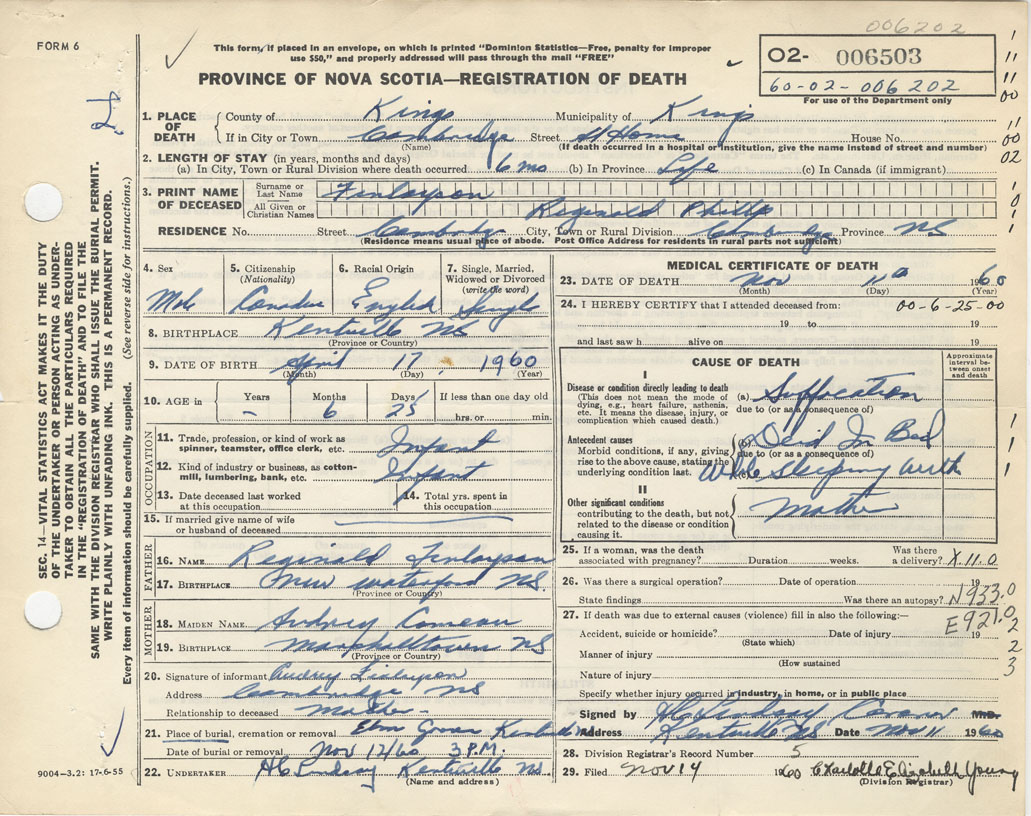 006202
FORM 6
This form, if placed in an envelope, on which is printed "Dominion Statistics—Free, penalty for improper
use $50," and properly addressed will pass through the mail "FREE"
PROVINCE OF NOVA SCOTIA—REGISTRATION OF DEATH
02- 006503
60-02-006202
For use of the Department only
1. PLACE OF DEATH
County of Kings Municipality of Kings
If in City or Town Cambridge Street At Home House No.
(Name) (If death occurred in a hospital or institution, give the name instead of street and number)
2. LENGTH OF STAY (in years, months and days)
(a) In City, Town or Rural Division where death occurred 6 mo (b) In Province Life (c) In Canada (if immigrant)
3. PRINT NAME OF DECEASED
Surname or Last Name Finlayson
All Given or Christian Names Reginald Phillip
RESIDENCE No. Street Cambridge City, Town or Rural Division Cambridge Province NS
(Residence means usual place of abode. Post Office Address for residents in rural parts not sufficient)
4. Sex
Male
5. Citizenship
(Nationality)
6. Racial Origin
English
7. Single, Married,
Widowed or Divorced
(write the word)
Single
8. BIRTHPLACE Kentville NS
(Province or Country)
9. DATE OF BIRTH April 17 1960
(Month) (Day) (Year)
10. AGE in
Years Months Days If less than one day old
- 6 25 hrs. or min.
OCCUPATION
11. Trade, profession, or kind of work as
spinner, teamster, office clerk, etc. Infant
12. Kind of industry or business, as cotton-
mill, lumbering, bank, etc. Infant
13. Date deceased last worked
at this occupation
14. Total yrs. spent in
this occupation
15. If married give name of wife
or husband of deceased
FATHER
16. NAME Reginald Finlayson
17. BIRTHPLACE New Waterford NS.
(Province or Country)
MOTHER
18. MAIDEN NAME Audrey Comeau
19. BIRTHPLACE Marshalltown NS
(Province or Country)
20. Signature of informant Audrey Finlayson
Address Cambridge NS
Relationship to deceased Mother
21. Place of burial, cremation or removal Elm Grove Kentville
Date of burial or removal Nov 12/60 3 P.M.
22. UNDERTAKER H C Lindsay Kentville NS
(Name and address)
MEDICAL CERTIFICATE OF DEATH
23. DATE OF DEATH Nov 11th 1960
(Month) (Day) (Year)
24. I HEREBY CERTIFY that I attended deceased from: 00-6-25-00
19 to 19
and last saw h alive on 19
CAUSE OF DEATH
Approximate
interval be-
tween onset
and death
I
Disease or condition directly leading to death
(This does not mean the mode of
dying, e.g., heart failure, asthenia,
etc. It means the disease, injury, or
complication which caused death.)
(a) Suffocation
due to (or as a consequence of)
Antecedent causes
Morbid conditions, if any, giving
rise to the above cause, stating the
underlying condition last.
(b) Died In Bed
due to (or as a consequence of)
(c) While Sleeping with
II
Other significant conditions
contributing to the death, but not
related to the disease or condition
causing it.
Mother
25. If a woman, was the death
associated with pregnancy? Duration weeks. Was there
a delivery? X.11.0
26. Was there a surgical operation? Date of operation 19
State findings Was there an autopsy? N933.0
27. If death was due to external causes (violence) fill in also the following:— E921.0
Accident, suicide or homicide? Date of injury 19
(State which)
Manner of injury
(How sustained
Nature of injury
Specify whether injury occurred in industry, in home, or in public place
Signed by H C Lindsay Coroner M.D.
Address Kentville NS Date Nov 11 1960
28. Division Registrar's Record Number 5
29. Filed Nov 14 1960 Charlotte Elizabeth Young
(Division Registrar)
SEC. 14—VITAL STATISTICS ACT MAKES IT THE DUTY
OF THE UNDERTAKER OR PERSON ACTING AS UNDER-
TAKER TO OBTAIN ALL THE PARTICULARS REQUIRED
IN THE "REGISTRATION OF DEATH" AND TO FILE THE
SAME WITH THE DIVISION REGISTRAR WHO SHALL ISSUE THE BURIAL PERMIT.
WRITE PLAINLY WITH UNFADING INK. THIS IS A PERMANENT RECORD.
Every item of information should be carefully supplied. (See reverse side for instructions.)
9004-3.2: 17-6-55
1
11
11
00
11
00
02
1
0
1
1
1
1
2
2
3